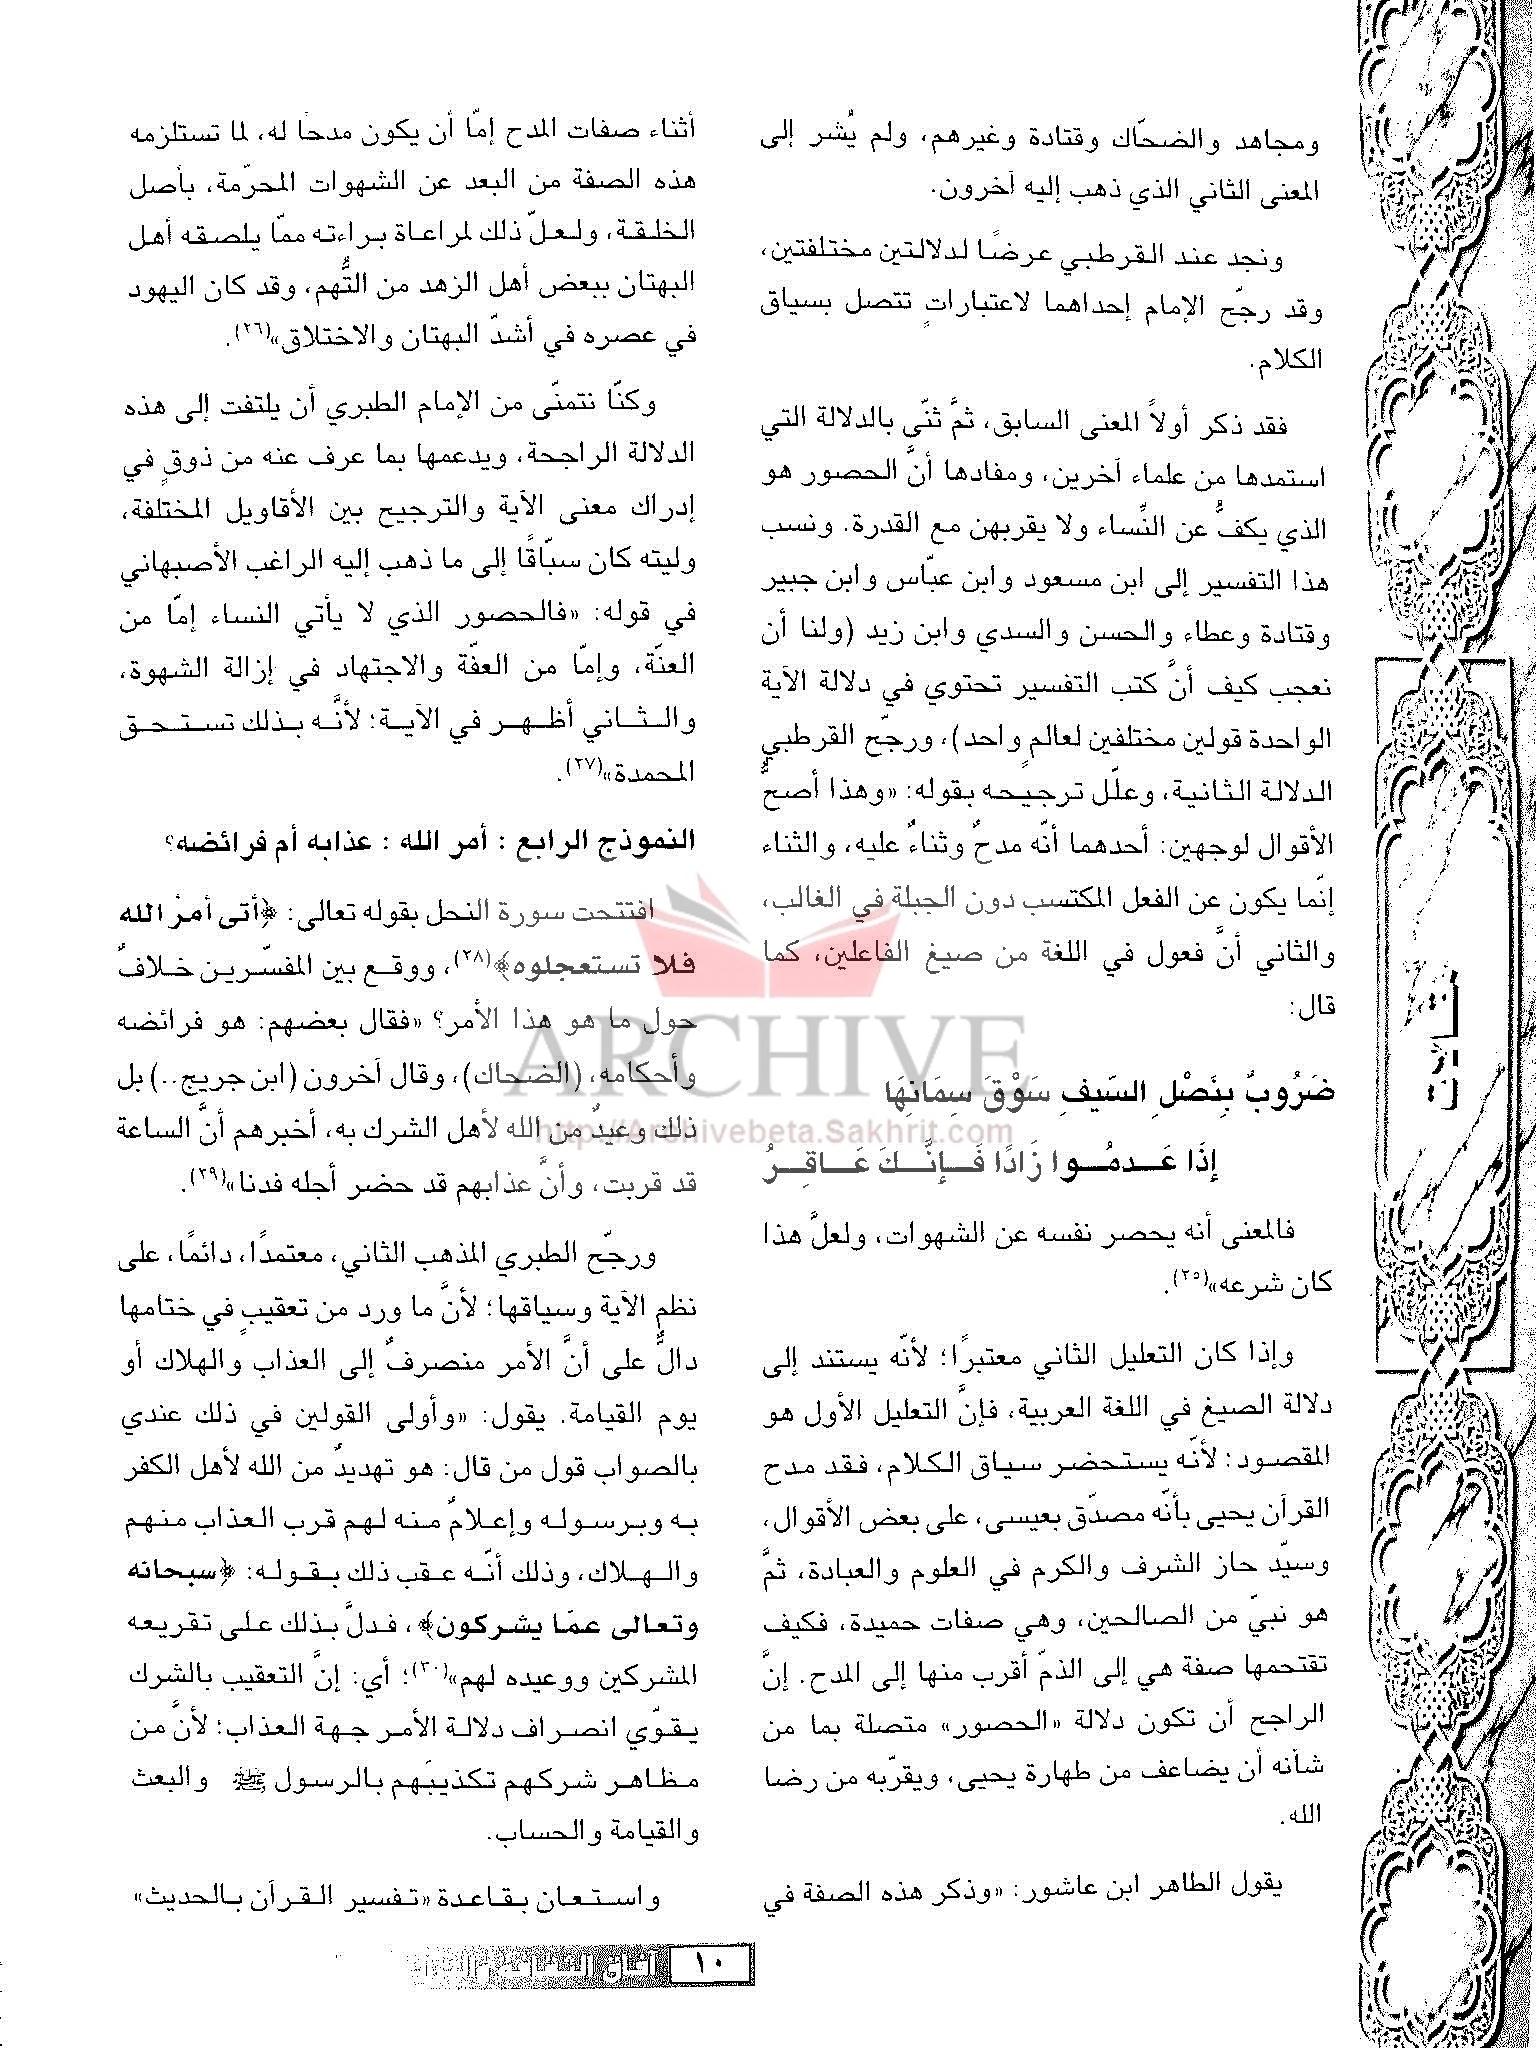 ومجاهد والضحّاك وقتادة وغيرهم، ولم يُشر إلى
المعنى الثاني الذي ذهب إليه آخرون.
ونجد عند القرطبي عرضًا لدلالتين مختلفتين،
وقد رجّح الإمام إحداهما لاعتباراتٍ تتصل بسياق
الكلام.
فقد ذكر أولاً المعنى السابق، ثمَّ ثنّى بالدلالة التي
استمدها من علماء آخرين، ومفادها أنَّ الحصور هو
الذي يكفُّ عن النِّساء ولا يقربهن مع القدرة. ونسب
هذا التفسير إلى ابن مسعود وابن عبّاس وابن جبير
وقتادة وعطاء والحسن والسدي وابن زيد (ولنا أن
نعجب كيف أنَّ كتب التفسير تحتوي في دلالة الآية
الواحدة قولين مختلفين لعالمٍ واحد)، ورجّح القرطبي
الدلالة الثانية، وعلّل ترجيحه بقوله: «وهذا أصحُّ
الأقوال لوجهين: أحدهما أنّه مدحٌ وثناءٌ عليه، والثناء
إنّما يكون عن الفعل المكتسب دون الجبلة في الغالب،
والثاني أنَّ فعول في اللغة من صيغ الفاعلين، كما
قال:
ضَرُوبٌ بِنَصْلِ السَيفِ سَوْقَ سِمَانِهَا
إِذَا عَدمُوا زَادًا فَإِنَّكَ عَاقِرُ
فالمعنى أنه يحصر نفسه عن الشهوات، ولعلَّ هذا
كان شرعه»(٢٥).
وإذا كان التعليل الثاني معتبرًا؛ لأنّه يستند إلى
دلالة الصيغ في اللغة العربية، فإنَّ التعليل الأول هو
المقصود؛ لأنّه يستحضر سياق الكلام، فقد مدح
القرآن يحيى بأنّه مصدّق بعيسى، على بعض الأقوال،
وسيّد حاز الشرف والكرم في العلوم والعبادة، ثمَّ
هو نبيّ من الصالحين، وهي صفات حميدة، فكيف
تقتحمها صفة هي إلى الذمّ أقرب منها إلى المدح. إنَّ
الراجح أن تكون دلالة «الحصور» متصلة بما من
شأنه أن يضاعف من طهارة يحيى، ويقرّبه من رضا
الله.
يقول الطاهر ابن عاشور: «وذكر هذه الصفة في
أثناء صفات المدح إمّا أن يكون مدحًا له، لما تستلزمه
هذه الصفة من البعد عن الشهوات المحرّمة، بأصل
الخلقة، ولعلّ ذلك لمراعاة براءته ممّا يلصقه أهل
البهتان ببعض أهل الزهد من التُّهم، وقد كان اليهود
في عصره في أشدّ البهتان والاختلاق»(٢٦).
وكنّا نتمنّى من الإمام الطبري أن يلتفت إلى هذه
الدلالة الراجحة، ويدعمها بما عرف عنه من ذوقٍ في
إدراك معنى الآية والترجيح بين الأقاويل المختلفة،
وليته كان سبّاقًا إلى ما ذهب إليه الراغب الأصبهاني
في قوله: «فالحصور الذي لا يأتي النساء إمّا من
العنّة، وإمّا من العفّة والاجتهاد في إزالة الشهوة،
والثاني أظهر في الآية؛ لأنَّه بذلك تستحق
المحمدة»(٢٧).
النموذج الرابع : أمر الله : عذابه أم فرائضه؟
افتتحت سورة النحل بقوله تعالى: ﴿أتى أمرُ الله
فلا تستعجلوه﴾(٢٨)، ووقع بين المفسّرين خلافٌ
حول ما هو هذا الأمر؟ «فقال بعضهم: هو فرائضه
وأحكامه، (الضحاك)، وقال آخرون (ابن جريج..) بل
ذلك وعيدٌ من الله لأهل الشرك به، أخبرهم أنَّ الساعة
قد قربت، وأنَّ عذابهم قد حضر أجله فدنا»(٢٩).
ورجّح الطبري المذهب الثاني، معتمدًا، دائمًا، على
نظم الآية وسياقها؛ لأنَّ ما ورد من تعقيبٍ في ختامها
دالٌّ على أنَّ الأمر منصرفٌ إلى العذاب والهلاك أو
يوم القيامة. يقول: «وأولى القولين في ذلك عندي
بالصواب قول من قال: هو تهديدٌ من الله لأهل الكفر
به وبرسوله وإعلامٌ منه لهم قرب العذاب منهم
والهلاك، وذلك أنّه عقب ذلك بقوله: ﴿سبحانه
وتعالى عمّا يشركون﴾، فدلَّ بذلك على تقريعه
المشركين ووعيده لهم»(٣٠)؛ أي: إنَّ التعقيب بالشرك
يقوّي انصراف دلالة الأمر جهة العذاب؛ لأنَّ من
مظاهر شركهم تكذيبَهم بالرسول ﷺ والبعث
والقيامة والحساب.
واستعان بقاعدة «تفسير القرآن بالحديث»
مقالات
ARCHIVE
http://Archivebeta.Sakhrit.com
١٠
آفاق الثقافة والتراث